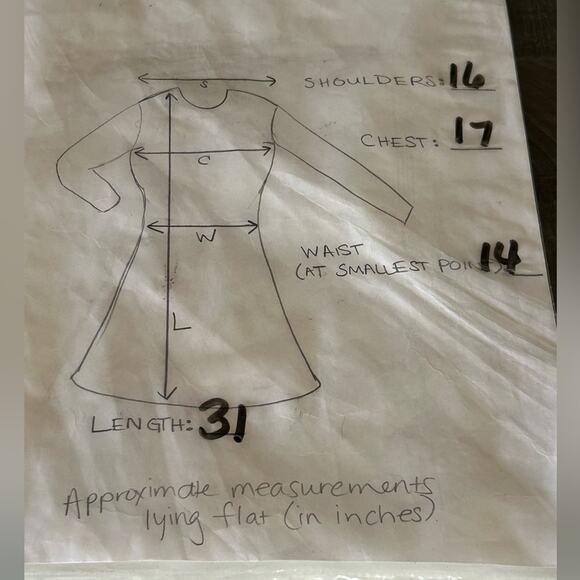 S
SHOULDERS: 16
CHEST: 17
C
W
WAIST
(AT SMALLEST POINT) 14
L
LENGTH: 31
Approximate measurements
lying flat (in inches)